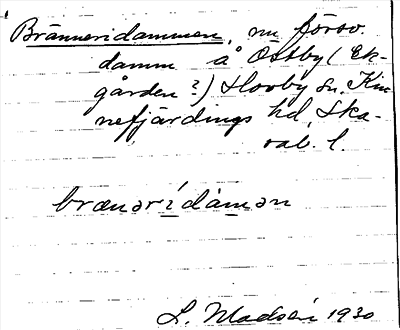 Bränneridammen, nu försv.
damm å Östby (Ek-
gården?) Hovby sn. Kin
nefjärdings hd, Ska-
rab. l.
brænərìdàmən
L. Madsén 1930